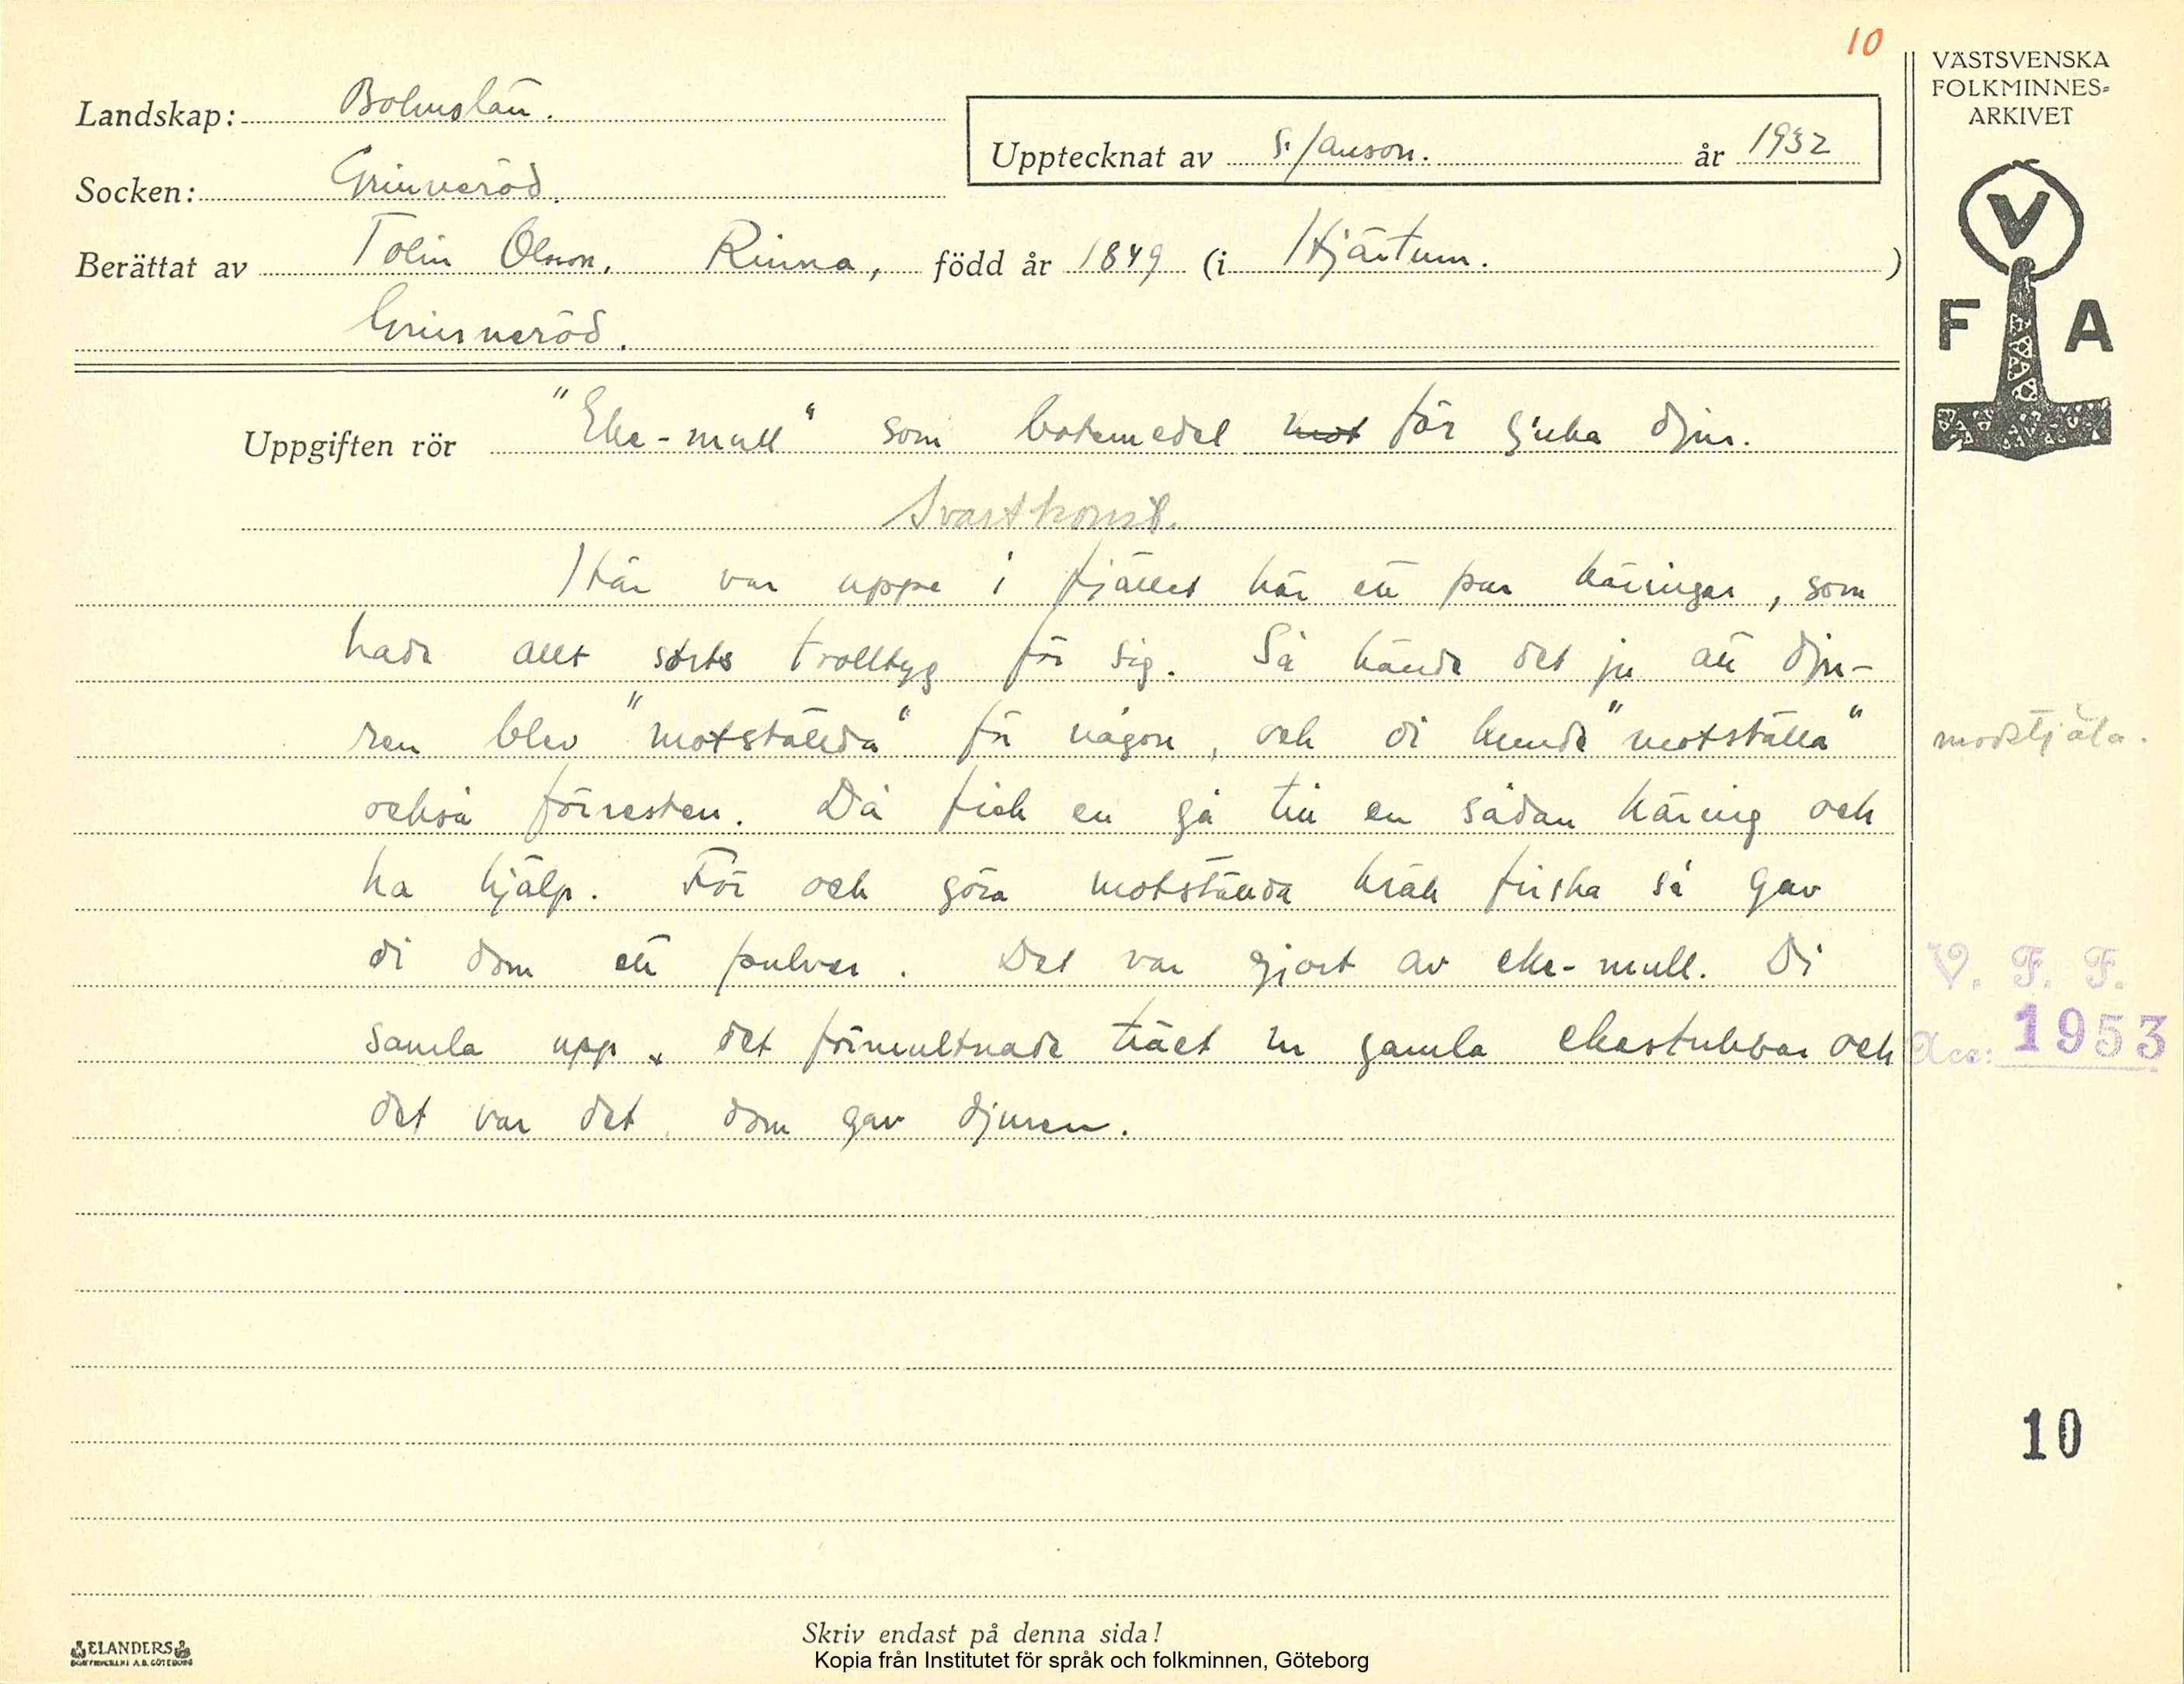 10
VÄSTSVENSKA
FOLKMINNES-
ARKIVET
Landskap: Bohuslän.
Upptecknat av S. Janson. år 1932
Socken: Grinneröd.
Berättat av Tolin Olsson, Rinna, född år 1849 (i Hjärtum.)
Grinneröd.
V
F A
Uppgiften rör "Eke-mull" som botemedel mot för sjuka djur.
Svartkonst.
Här var uppe i fjället här ett par käringar, som
hade allt sorts trolltyg för sig. Så hände det ju att dju-
ren blev "motställda" för någon, och di kunde "motställa"
modstjäla.
också förresten. Då fick en gå till en sådan käring och
ha hjälp. För och göra motställda kräk friska så gav
di dom ett pulver. Det var gjort av eke-mull. Di
V. F. F.
samla upp det förmultnade träet ur gamla ekestubbar och
Acc: 1953
det var det dom gav djuren.
10
Skriv endast på denna sida!
ELANDERS
Kopia från Institutet för språk och folkminnen, Göteborg